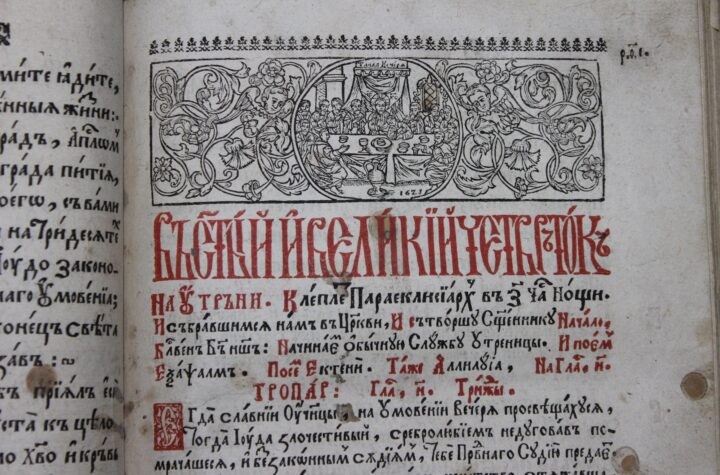 мите ꙗдите,
виныѧ жизни:
градъ, Ап҃лѡм
града питїѧ,
моегѡ, съ вами
на Тридесѧте
Іоудо Законо-
наго оумовенїа;
конецъ свѣта
ѕавъ:
бѡ прїѧлъ ей
оуста къ цѣло-
ло Хв҃о и кръвы
Тайнаа Вечерѧ
1621
ВЪ СТ҃ЫЙ И ВЕЛИКЇЙ ЧЕТВРЪТОКЪ
НА ОУТРЪНИ. Клеплет Параекклисїархъ въ З҃ ча҃ Нощи.
И събравшимсѧ нам въ Цр҃кви, И сътворшу Сщ҃еннику Начало.
Блв҃енъ Бъ҃ нш҃ъ: Начинаем Обычную Службу Утреницы. И поемъ
Еѯаѱалмъ. Посем Ектенїи. Таже Аллилуїа, На Гла҃, и҃.
ТРОПАРЪ: Гла҃, и҃. Трижы.
Егда славнїи Оуч҃ницы, на умовенїи вечерѧ просвѣщахусѧ,
Тогда Іоуда злочестивый, сребролюбїемъ недуговавъ по-
мрачашесѧ, и беззаконным сꙋдїѧмъ, Тебе Праведнаго Судїю предаетъ